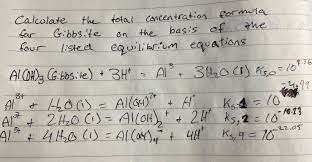 Calculate the total concentration formula
for Gibbsite on the basis of the
four listed equilibrium equations
Al(OH)₃ (Gibbsite) + 3H⁺ = Al³⁺ + 3H₂O (l) Ks,0 = 10
Al³⁺ + H₂O (l) = Al(OH)²⁺ + H⁺ Ks,1 = 10⁻⁴·⁹⁹
Al³⁺ + 2H₂O (l) = Al(OH)₂⁺ + 2H⁺ Ks,2 = 10⁻¹⁰·¹³
Al³⁺ + 4H₂O (l) = Al(OH)₄⁻ + 4H⁺ Ks,4 = 10⁻²²·⁰⁵